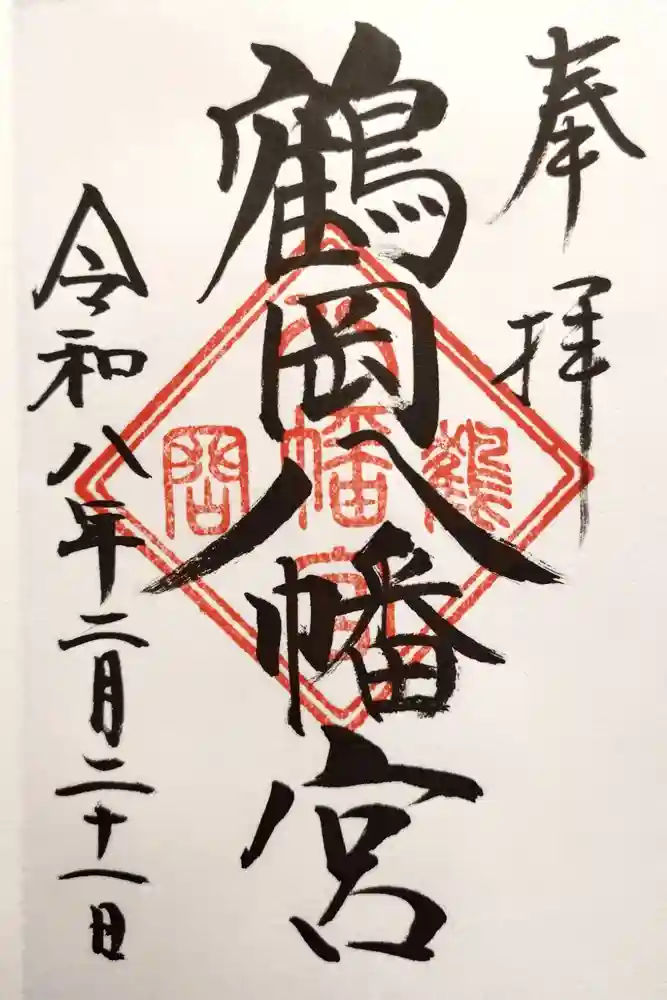 奉拝
鶴岡八幡宮
令和八年二月二十一日
鶴
八幡宮
岡